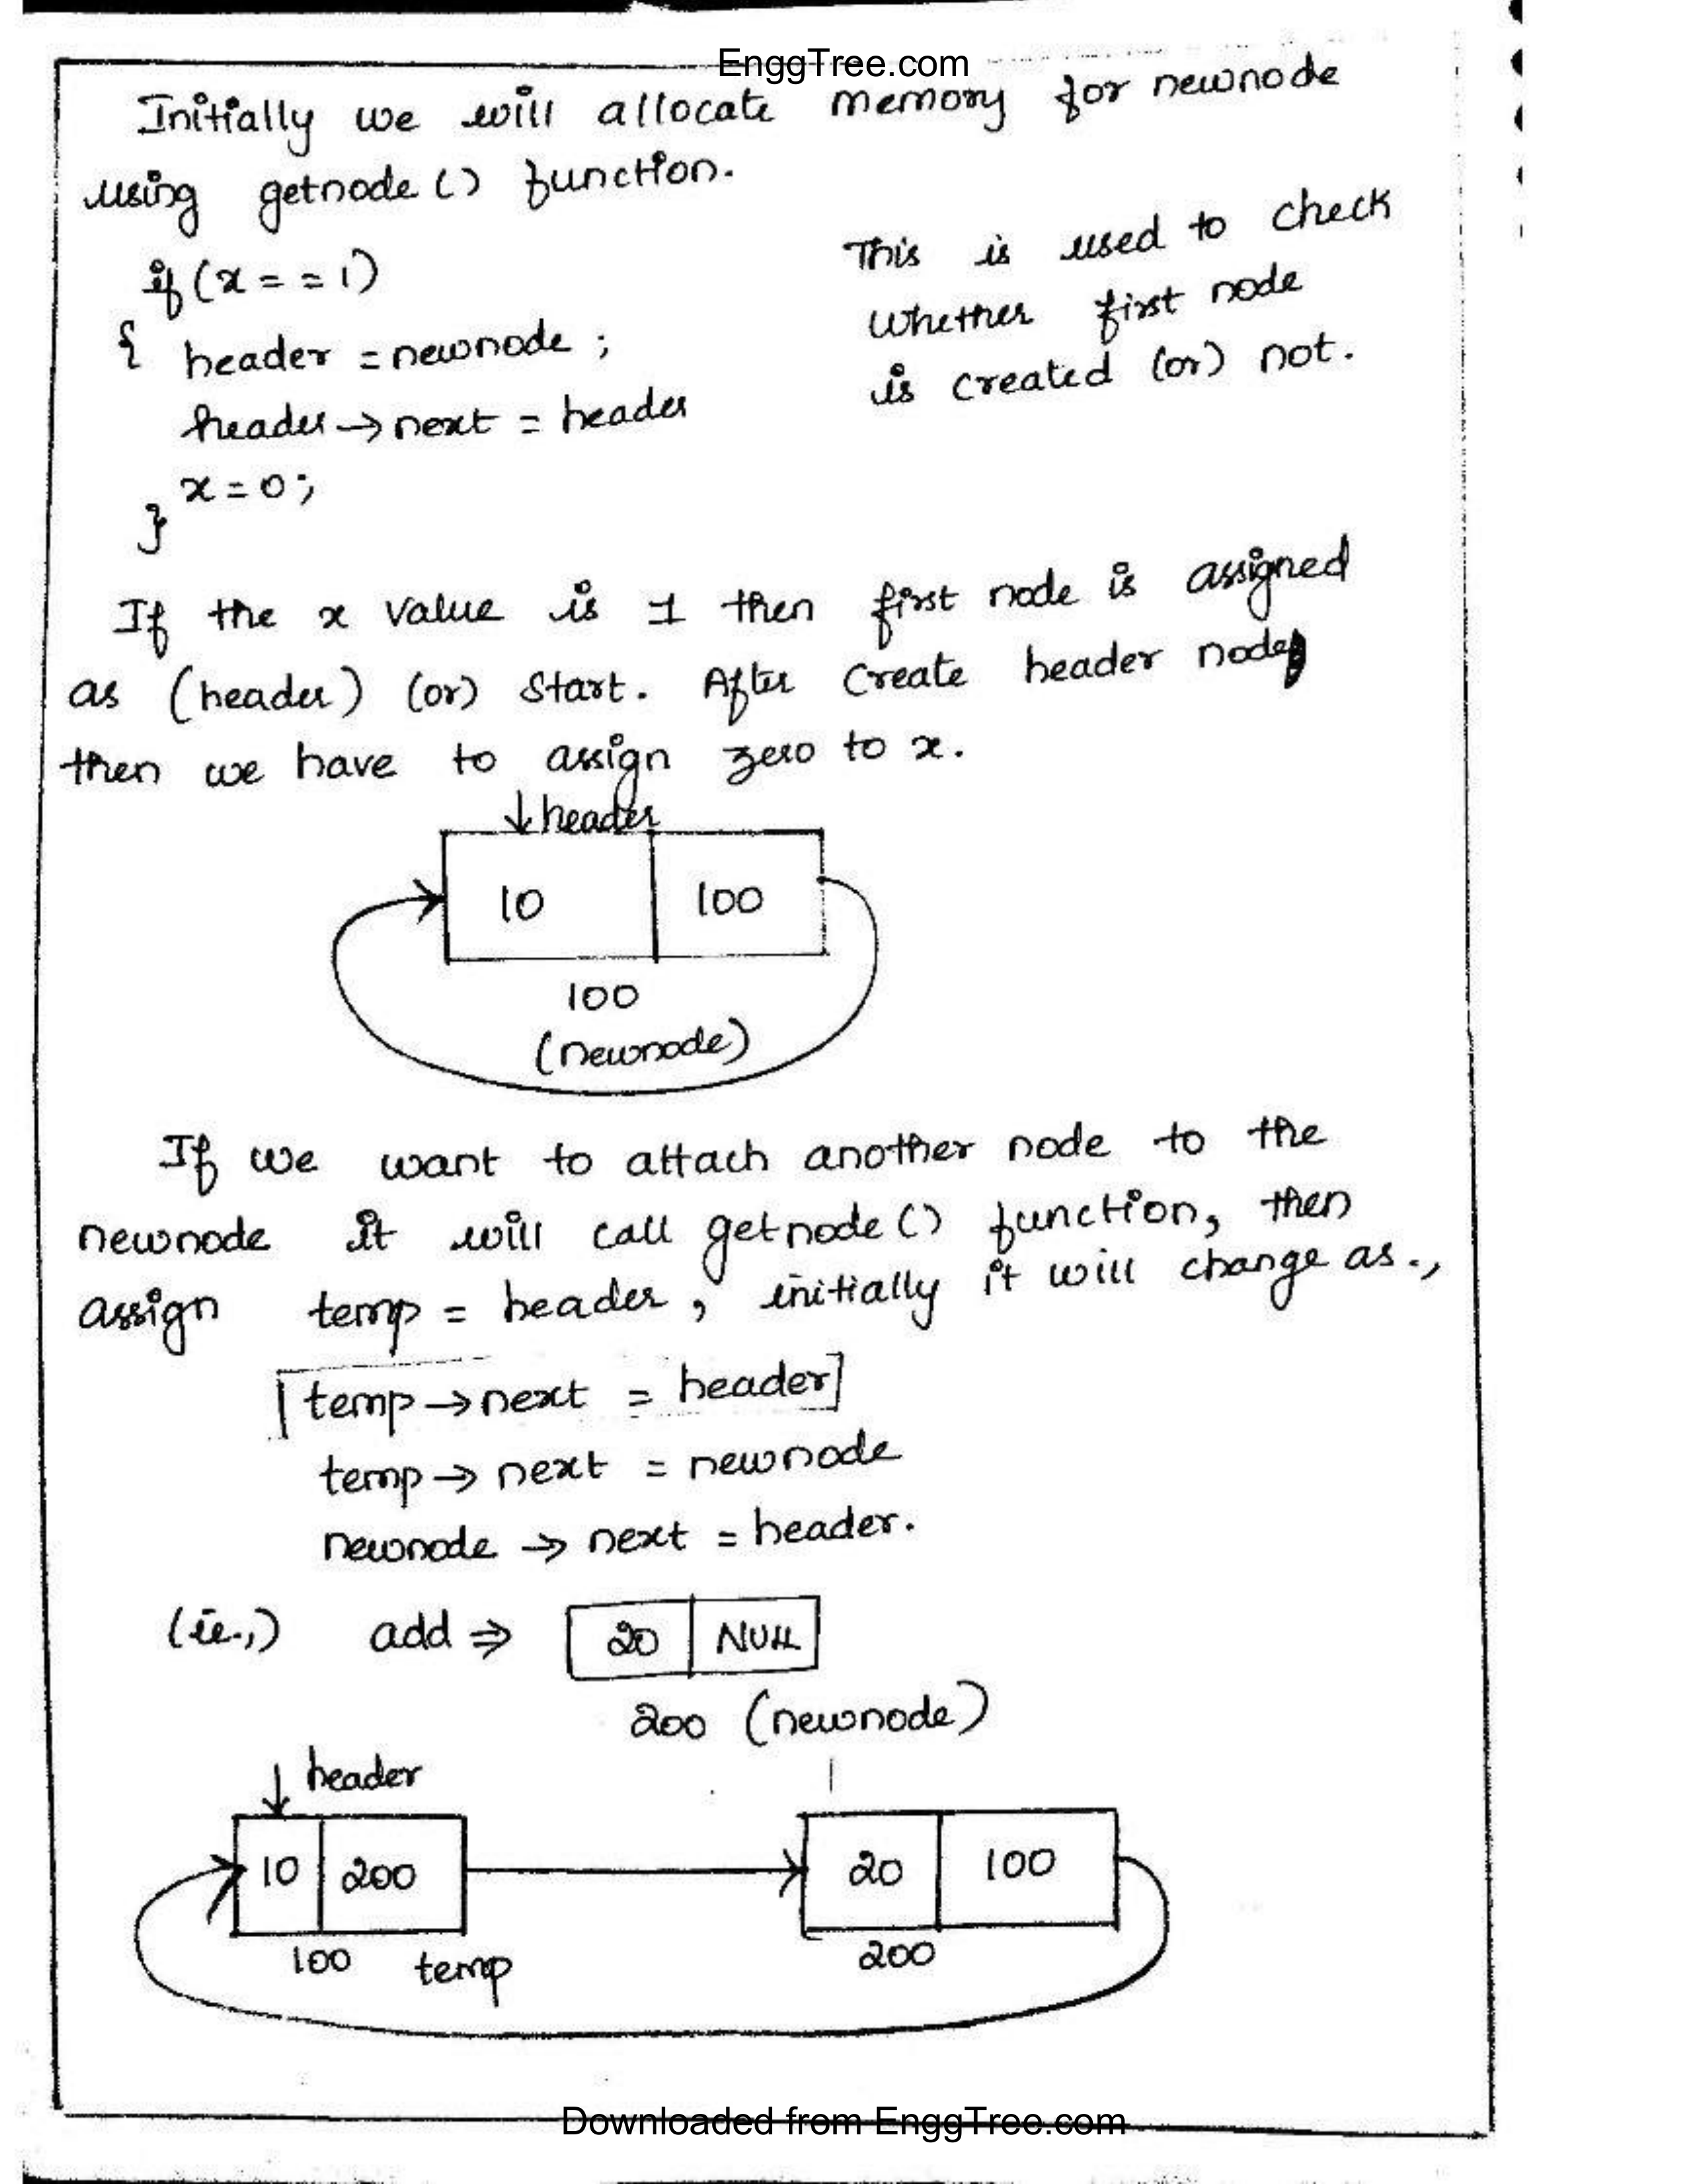 EnggTree.com
Initially we will allocate memory for newnode
using getnode() function.
if(x==1)
{ header = newnode ;
header → next = header
x = 0;
}
This is used to check
Whether first node
is created (or) not.
If the x value is 1 then first node is assigned
as (header) (or) start. After Create header node
then we have to assign zero to x.
↓ header
10 100
100
(newnode)
If we want to attach another node to the
newnode it will call getnode() function, then
assign temp = header, initially it will change as.,
[temp → next = header]
temp → next = newnode
newnode → next = header.
(ie.,) add ⇒ 20 NULL
200 (newnode)
↓ header
10 200 20 100
100 temp 200
Downloaded from EnggTree.com